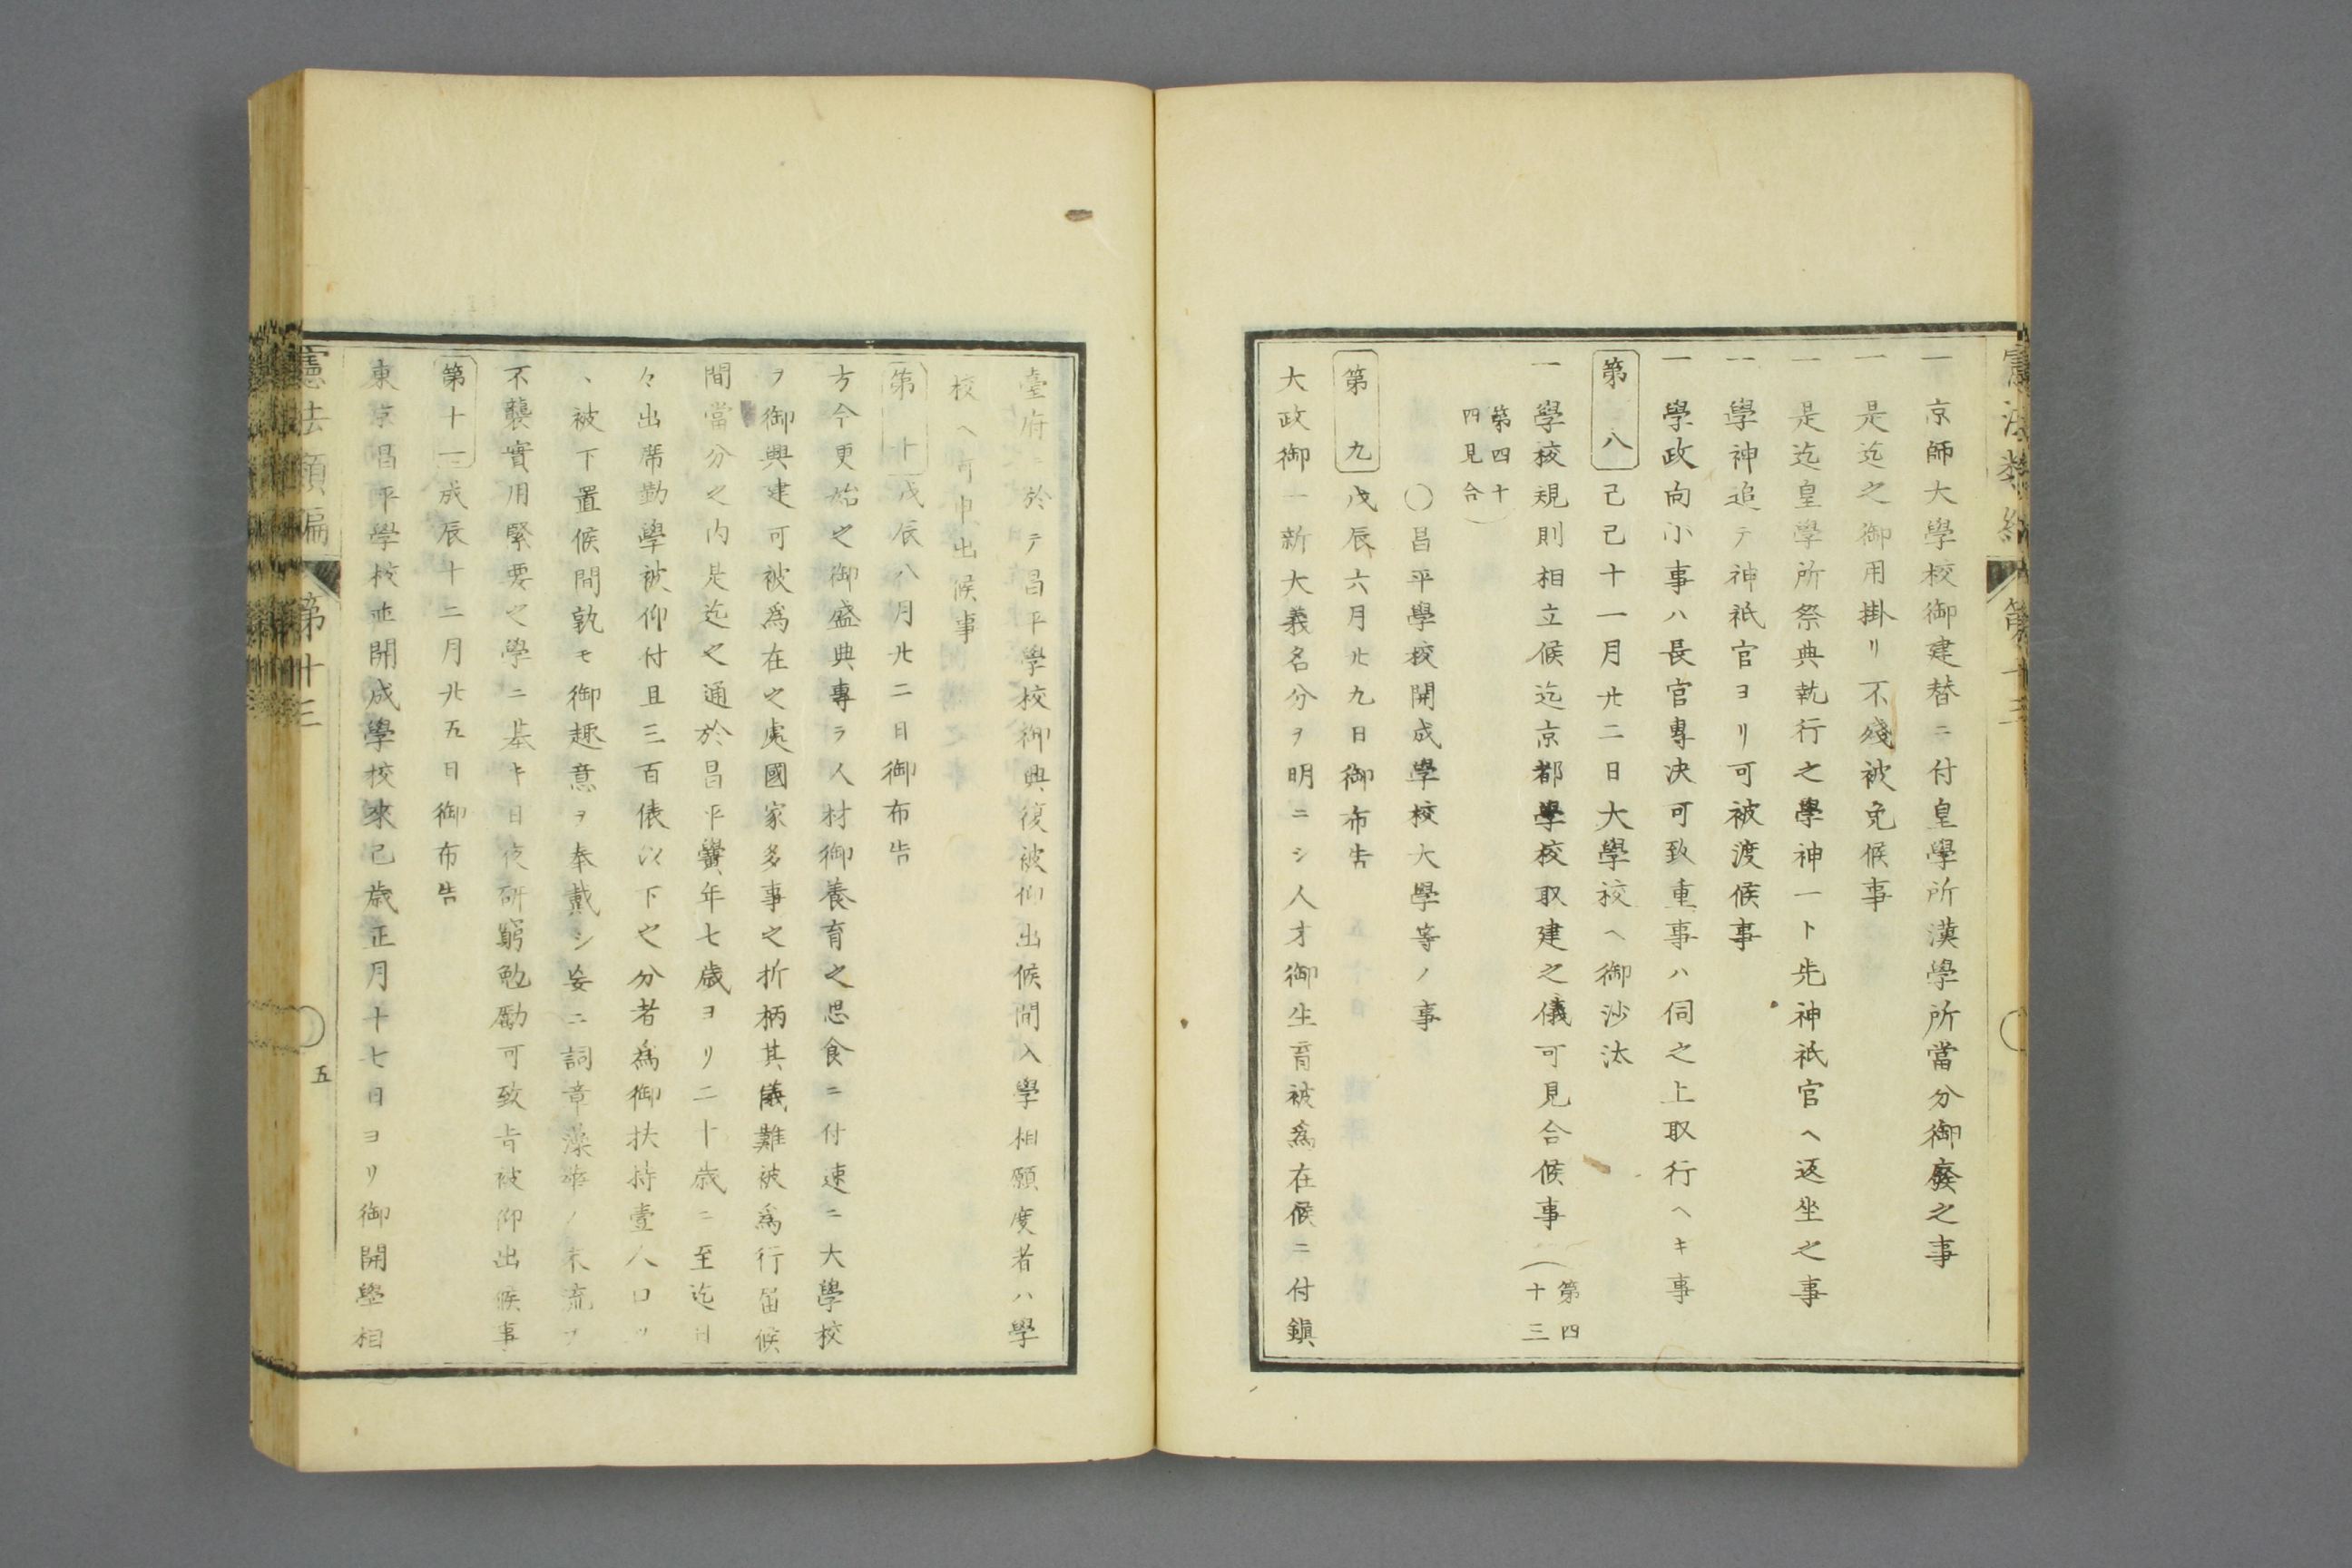 一京師大學校御建替ニ付皇學所漢學所當分御廢之事
一是迄之御用掛リ不殘被免候事
一是迄皇學所祭典執行之學神一ト先神祇官ヘ返坐之事
一學神追テ神祇官ヨリ可被渡候事
一學政向小事ハ長官專決可致重事ハ伺之上取行ヘキ事
第八己巳十一月廿二日大學校ヘ御沙汰
一學校規則相立候迄京都學校取建之儀可見合候事(第四
十三
第四十
四見合)
〇昌平學校開成學校大學等ノ事
第九戊辰六月廿九日御布告
大政御一新大義名分ヲ明ニシ人才御生育被爲在候ニ付鎭
臺府ニ於テ昌平學校御興復被仰出候間入學相願度者ハ學
校ヘ可申出候事
第十戊辰八月廿二日御布告
方今更始之御盛典專ラ人材御養育之思食ニ付速ニ大學校
ヲ御興建可被爲在之處國家多事之折柄其儀難被爲行屆候
間當分之内是迄之通於昌平黌年七歳ヨリ二十歳ニ至迄日
々出席勤學被仰付且三百俵以下之分者爲御扶持壹人口ツ
ヽ被下置候間孰モ御趣意ヲ奉戴シ妄ニ詞章藻華ノ末流ヲ
不襲實用緊要之學ニ基キ日夜研窮勉勵可致旨被仰出候事
第十一戊辰十二月廿五日御布告
東京昌平學校並開成學校來己歳正月十七日ヨリ御開黌相
憲法類編 第十三
五